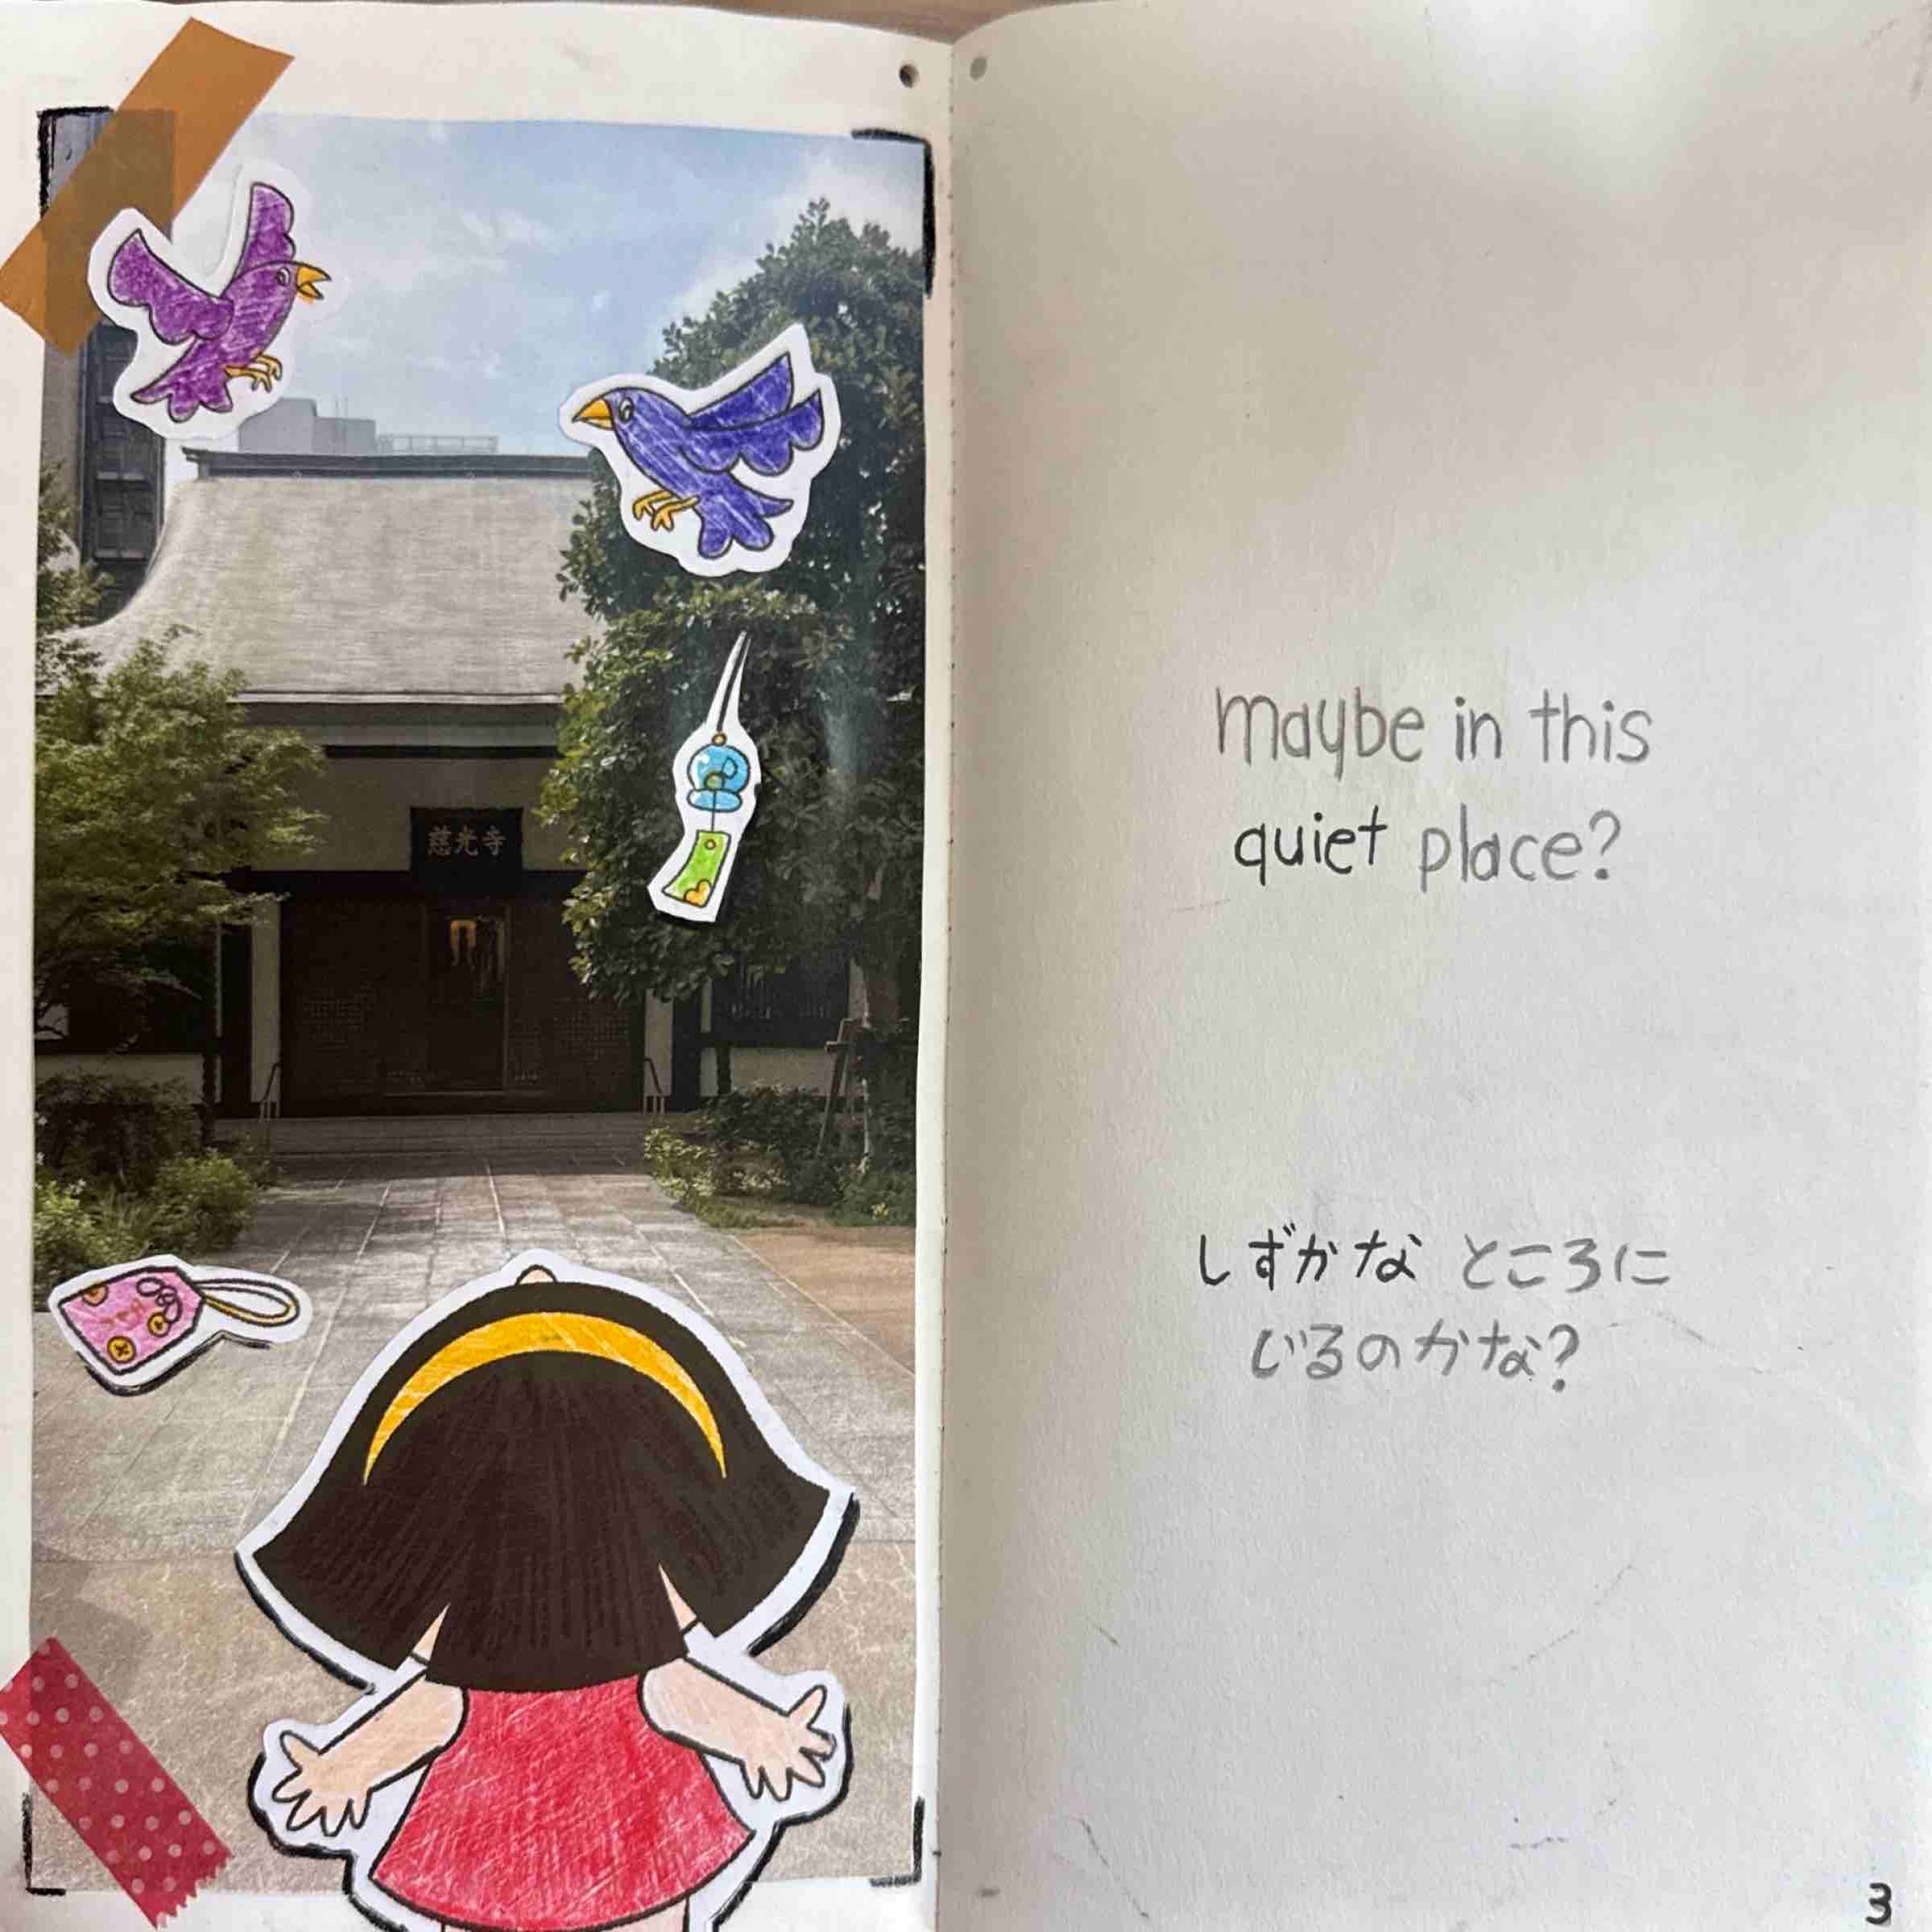 慈光寺
maybe in this
quiet place?
しずかな ところに
いるのかな?
3